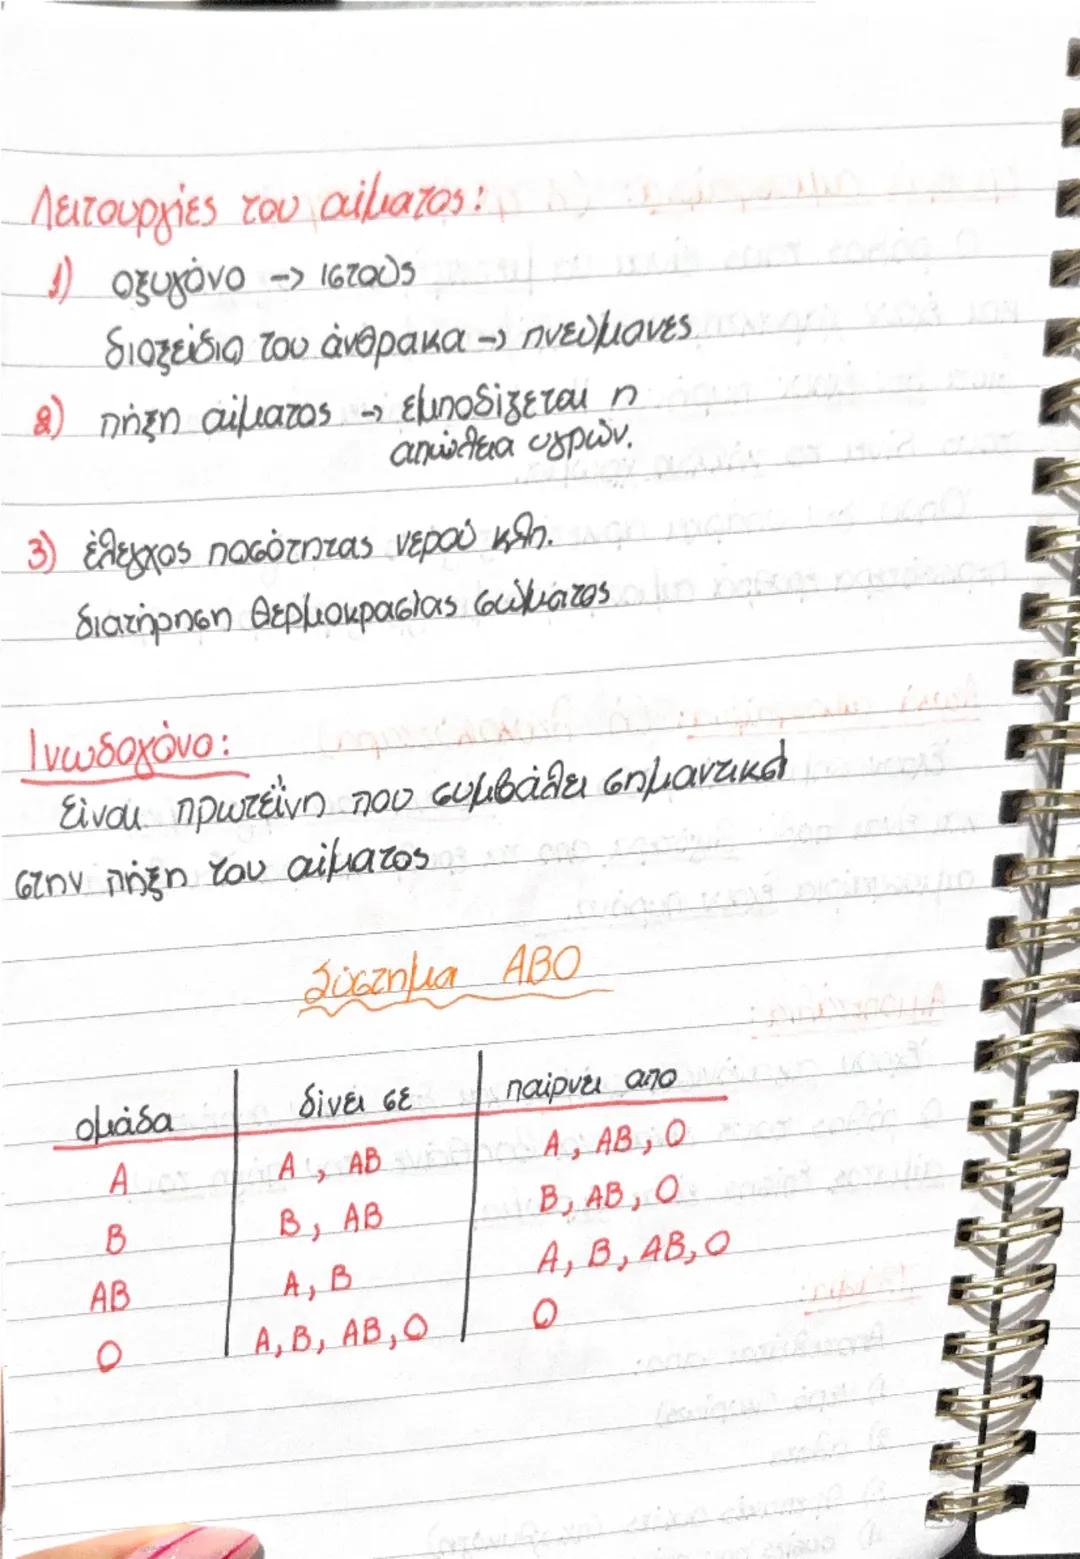 Λειτουργίες του αίματος:
1) οξυγόνο -> ιστούς
διοξείδιο του άνθρακα -> πνεύμονες
2) πήξη αίματος -> εμποδίζεται η
απώλεια υγρών.
3) έλεγχος ποσότητας νερού κλπ.
διατήρηση θερμοκρασίας σώματος
Ινωδογόνο:
Είναι πρωτεΐνη που συμβάλει σημαντικά
στην πήξη του αίματος
Σύστημα ABO
ομάδα δίνει σε παίρνει απο
A A, AB A, AB, O
B B, AB B, AB, O
AB A, B A, B, AB, O
O A, B, AB, O O